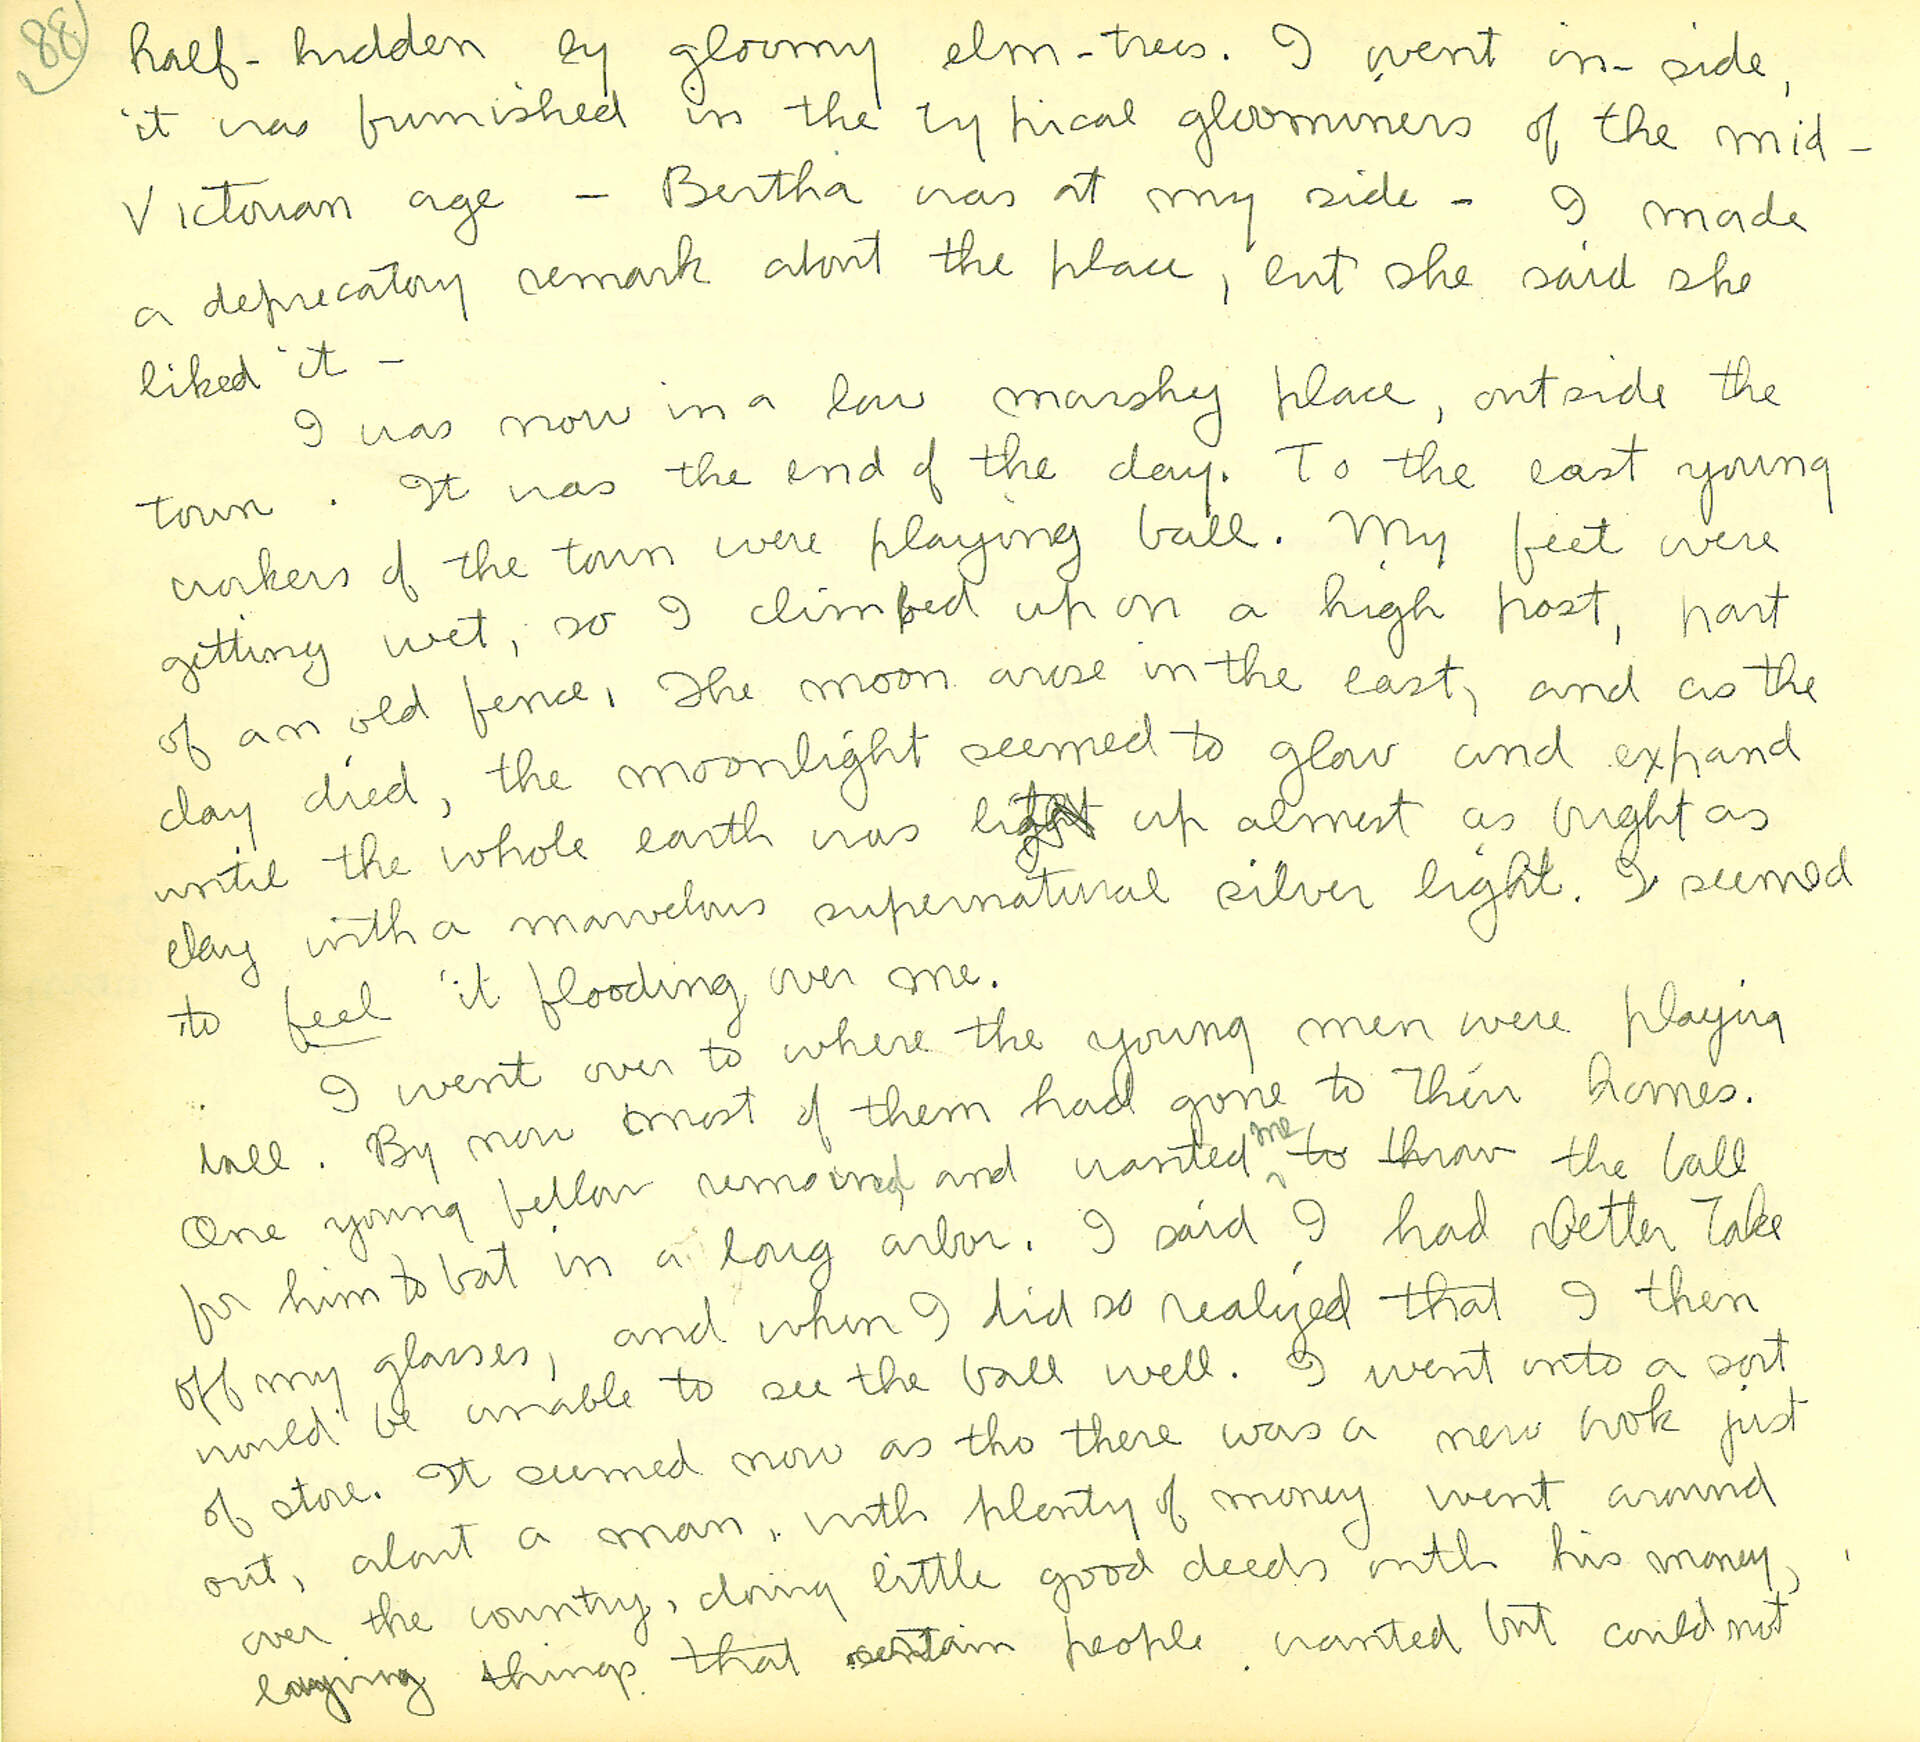 88
half-hidden by gloomy elm-trees. I went in-side,
it was furnished in the typical gloominess of the mid-
Victorian age - Bertha was at my side - I made
a deprecatory remark about the place, but she said she
liked it -
I was now in a low marshy place, outside the
town. It was the end of the day. To the east young
workers of the town were playing ball. My feet were
getting wet, so I climbed up on a high post, part
of an old fence. The moon arose in the east, and as the
day died, the moonlight seemed to glow and expand
until the whole earth was lit up almost as bright as
day with a marvelous supernatural silver light. I seemed
to feel it flooding over me.
I went over to where the young men were playing
ball. By now most of them had gone to their homes.
One young fellow remained, and wanted me to throw the ball
for him to bat in a long arbor. I said I had better take
off my glasses, and when I did so realized that I then
would be unable to see the ball well. I went into a sort
of store. It seemed now as tho there was a new book just
out, about a man, with plenty of money went around
over the country, doing little good deeds with his money,
buying things that certain people wanted but could not